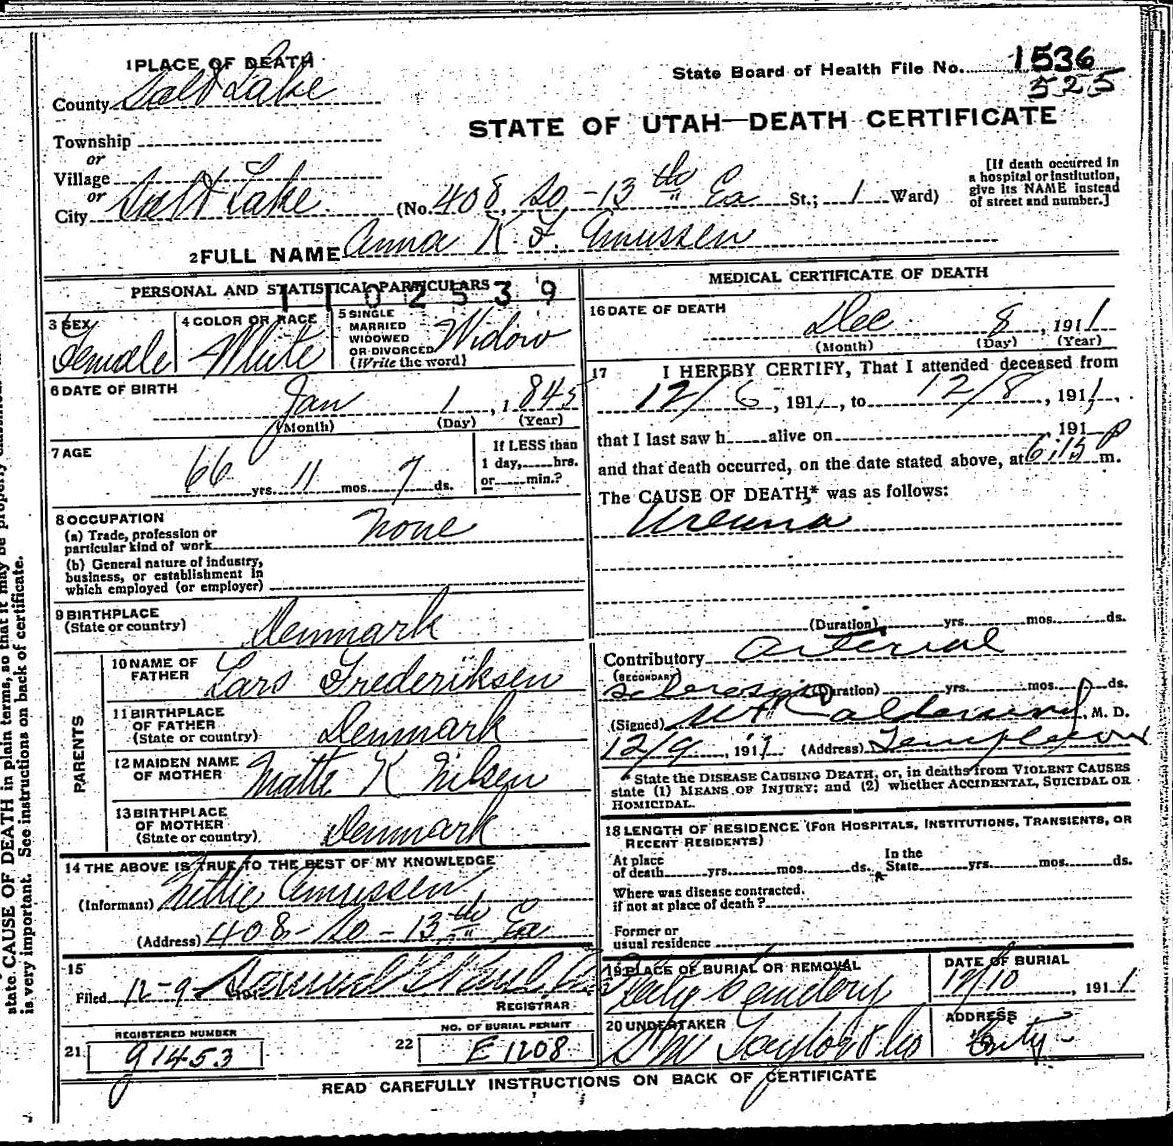 1 PLACE OF DEATH
State Board of Health File No. 1536
525
County Salt Lake
STATE OF UTAH—DEATH CERTIFICATE
Township
or
Village
or
City Salt Lake (No. 408 So - 13th Ea St.; 1 Ward)
[If death occurred in
a hospital or institution,
give its NAME instead
of street and number.]
2 FULL NAME Anna K F. Amussen
PERSONAL AND STATISTICAL PARTICULARS
1102539
3 SEX
Female
4 COLOR OR RACE
White
5 SINGLE
MARRIED
WIDOWED
OR DIVORCED
(Write the word)
Widow
6 DATE OF BIRTH
Jan 1, 1845
(Month) (Day) (Year)
7 AGE
66 yrs. 11 mos. 7 ds.
If LESS than
1 day, hrs.
or min.?
8 OCCUPATION
(a) Trade, profession or
particular kind of work None
(b) General nature of industry,
business, or establishment in
which employed (or employer)
9 BIRTHPLACE
(State or country) Denmark
PARENTS
10 NAME OF
FATHER Lars Frederiksen
11 BIRTHPLACE
OF FATHER
(State or country) Denmark
12 MAIDEN NAME
OF MOTHER Matte K Nilsen
13 BIRTHPLACE
OF MOTHER
(State or country) Denmark
14 THE ABOVE IS TRUE TO THE BEST OF MY KNOWLEDGE
(Informant) Nettie Amussen
(Address) 408 - So - 13th Ea
15
Filed 12-9 191 Samuel G Paul
REGISTRAR
REGISTERED NUMBER
21. g1453
NO. OF BURIAL PERMIT
22 E1208
MEDICAL CERTIFICATE OF DEATH
16 DATE OF DEATH
Dec 8, 1911
(Month) (Day) (Year)
17 I HEREBY CERTIFY, That I attended deceased from
12/6, 1911, to 12/8, 1911,
that I last saw h alive on , 191
and that death occurred, on the date stated above, at 6:15 P m.
The CAUSE OF DEATH,* was as follows:
Uremia
(Duration) yrs. mos. ds.
Contributory Arterial
(SECONDARY)
Sclerosis (Duration) yrs. mos. ds.
(Signed) Calderwood, M. D.
12/9, 1911 (Address) Templeton
*State the DISEASE CAUSING DEATH, or, in deaths from VIOLENT CAUSES
state (1) MEANS OF INJURY; and (2) whether ACCIDENTAL, SUICIDAL OR
HOMICIDAL.
18 LENGTH OF RESIDENCE (FOR HOSPITALS, INSTITUTIONS, TRANSIENTS, OR
RECENT RESIDENTS)
At place
of death yrs. mos. ds.
In the
State yrs. mos. ds.
Where was disease contracted.
if not at place of death?
Former or
usual residence
19 PLACE OF BURIAL OR REMOVAL
City Cemetery
DATE OF BURIAL
12/10, 1911
20 UNDERTAKER
S M Taylor & Co
ADDRESS
City
READ CAREFULLY INSTRUCTIONS ON BACK OF CERTIFICATE
state CAUSE OF DEATH in plain terms, so that it may be properly
is very important. See instructions on back of certificate.